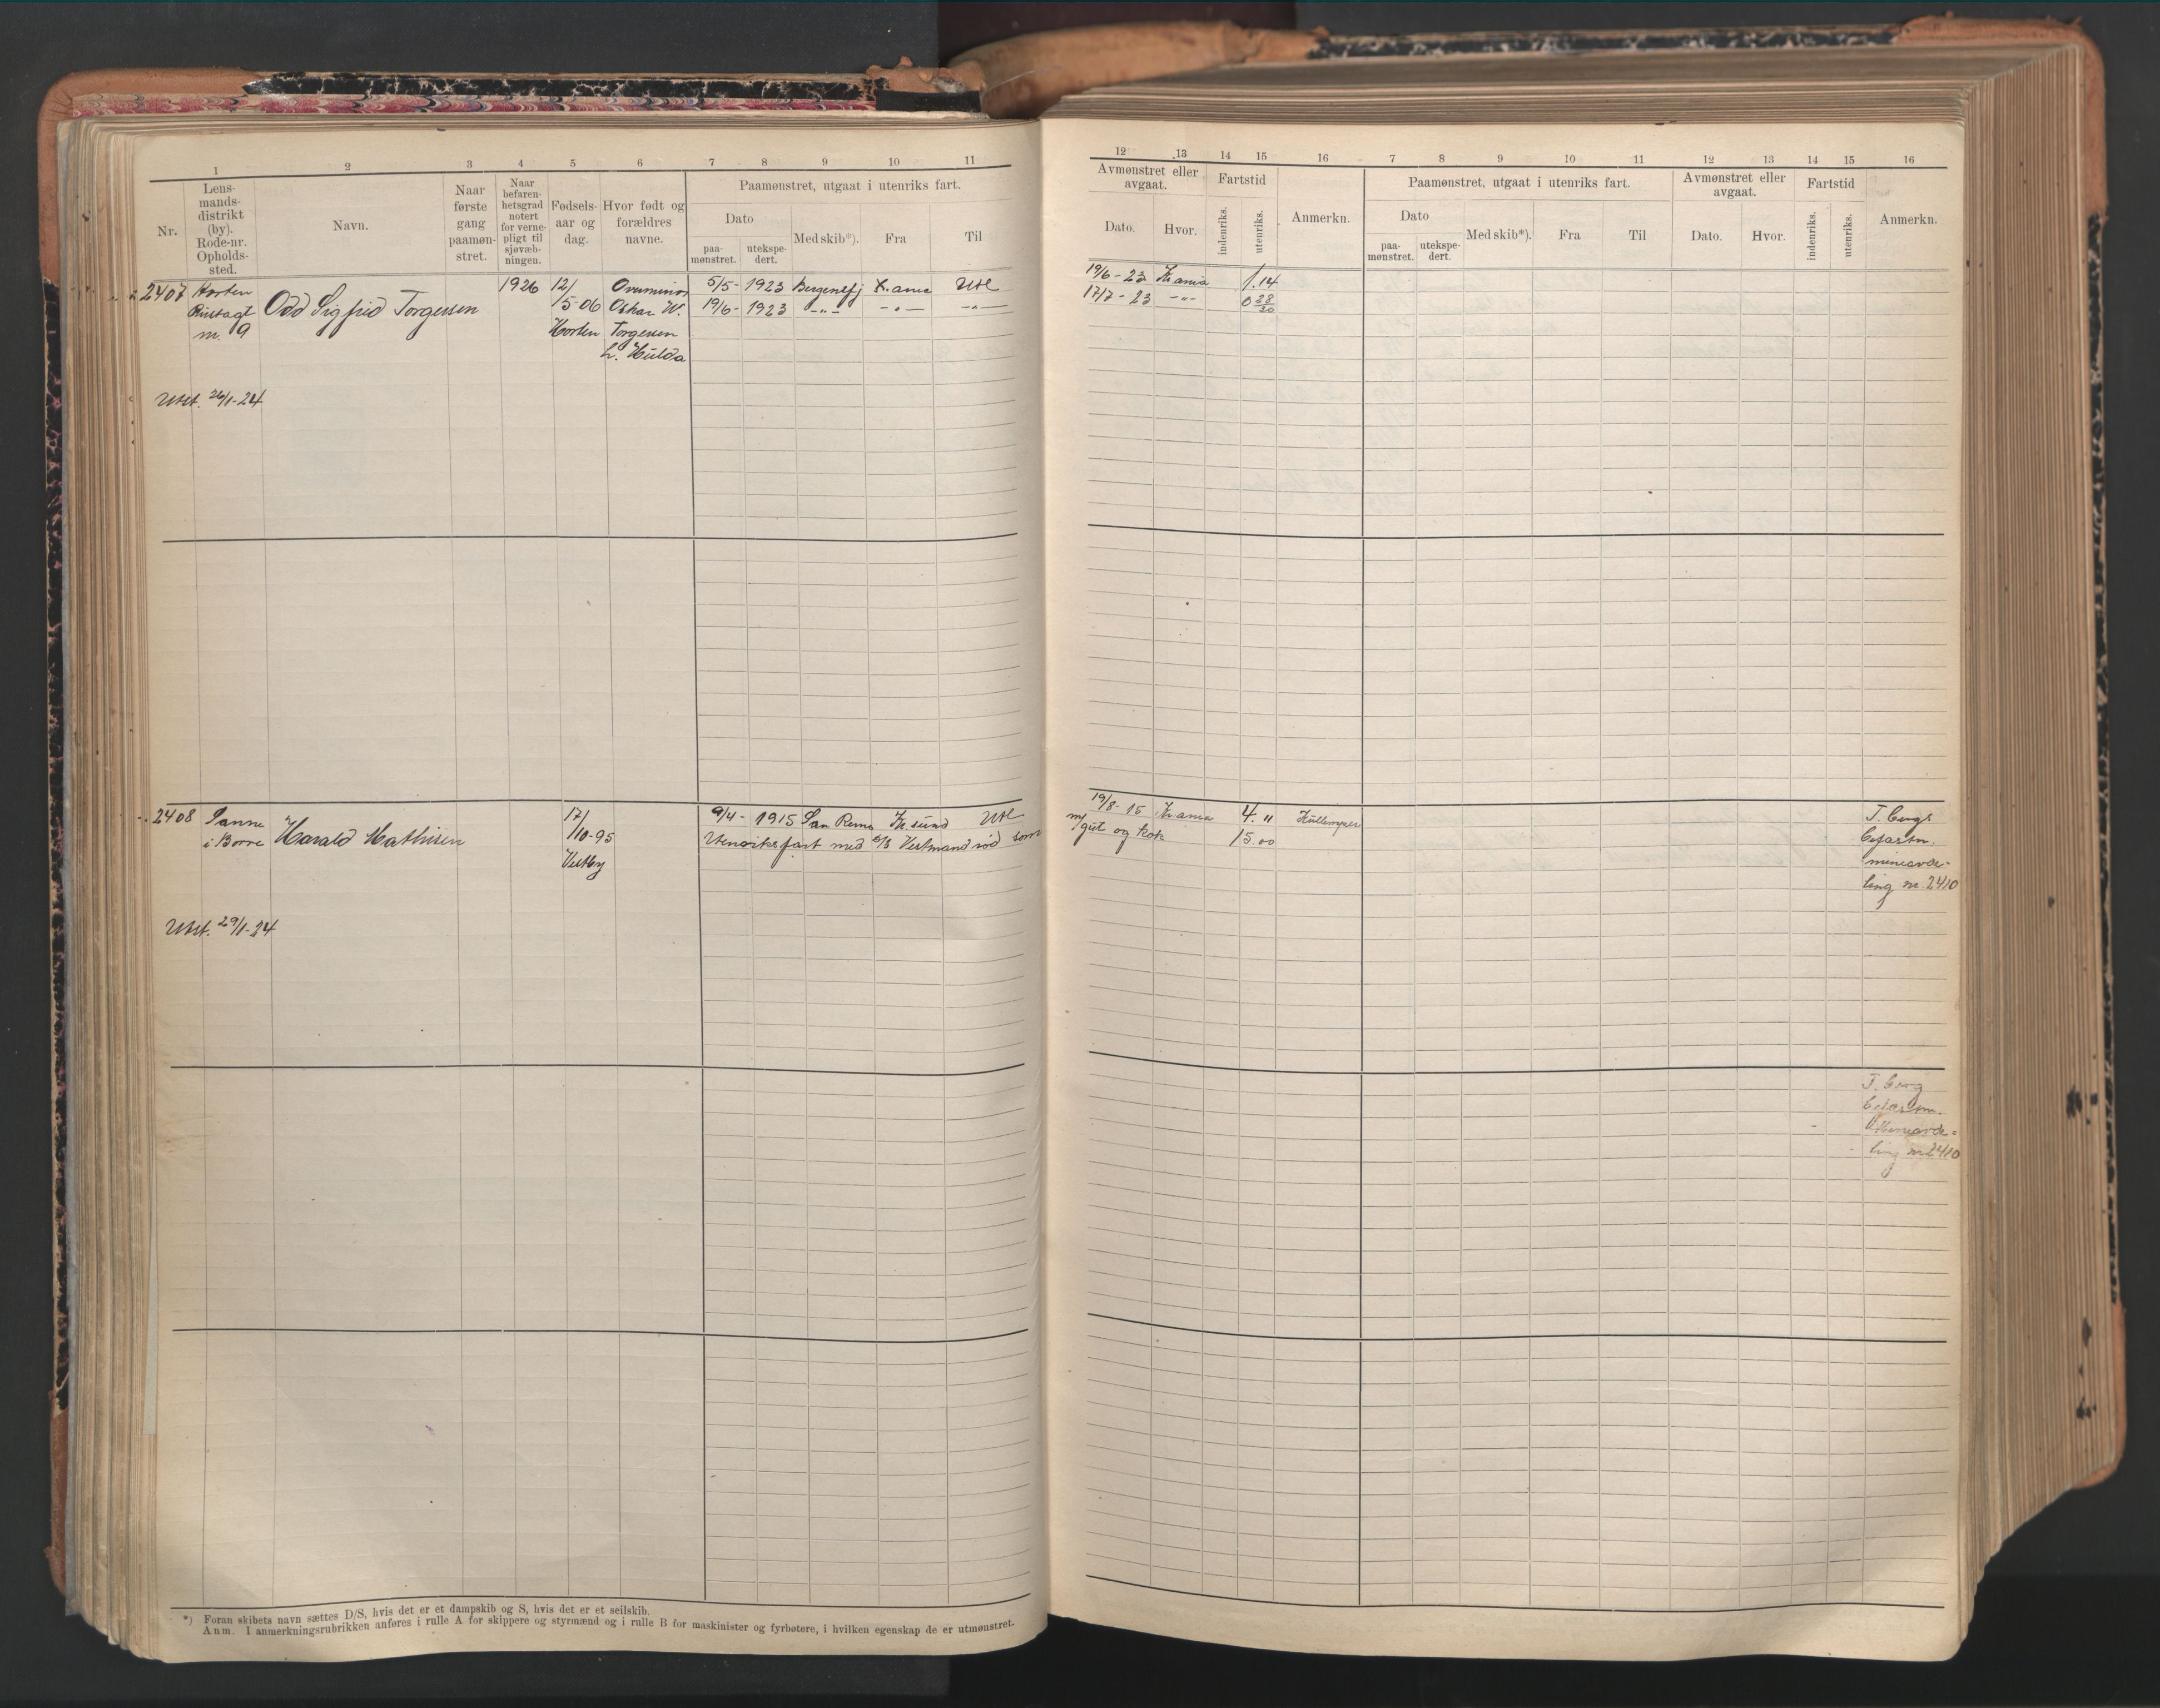 1 2 3 4 5 6 7 8 9 10 11
Nr.
Lens-
mands-
distrikt
(by).
Rode-nr.
Opholds-
sted.
Navn.
Naar
første
gang
paamøn-
stret.
Naar
befaren-
hetsgrad
notert
for verne-
pligt til
sjøvæb-
ningen.
Fødsels-
aar og
dag.
Hvor født og
forældres
navne.
Paamønstret, utgaat i utenriks fart.
Dato
paa-
mønstret.
utekspe-
dert.
Med skib*).
Fra
Til
2407 Horten Odd Sigfred Torgersen 1926 12/ 5/5- 1923 Bergensfj X.ania Utl
m. 9 5-06 Oskar W. 19/6- 1923 -"- -"- -"-
Horten Torgersen
h. Hulda
Utst. 26/1-24
2408 Sanne Harald Mathisen 17/ 9/4- 1915 San Remo Kr.sund Utl
i Borre 10-95 Utenriksfart med s/s Vestmanrød som
Vestby
Utst. 29/1-24
*) Foran skibets navn sættes D/S, hvis det er et dampskib og S, hvis det er et seilskib.
Anm. I anmerkningsrubrikken anføres i rulle A for skippere og styrmænd og i rulle B for maskinister og fyrbøtere, i hvilken egenskap de er utmønstret.
12 13 14 15 16 7 8 9 10 11 12 13 14 15 16
Avmønstret eller
avgaat.
Fartstid
Dato.
Hvor.
indenriks.
utenriks.
Anmerkn.
Paamønstret, utgaat i utenriks fart.
Dato
paa-
mønstret.
utekspe-
dert.
Med skib*).
Fra
Til
Avmønstret eller
avgaat.
Fartstid
Dato.
Hvor.
indenriks.
utenriks.
Anmerkn.
19/6-23 Kr.ania 1.14
17/7-23 -"- 0 28/30
19/8-15 Kr.ania 4." Kullemper
gut og kok 15.00
T. Bergs
befæstn.
mineavde-
ling nr. 2410
T. Berg
befæstn.
Mineavde-
ling nr 2410